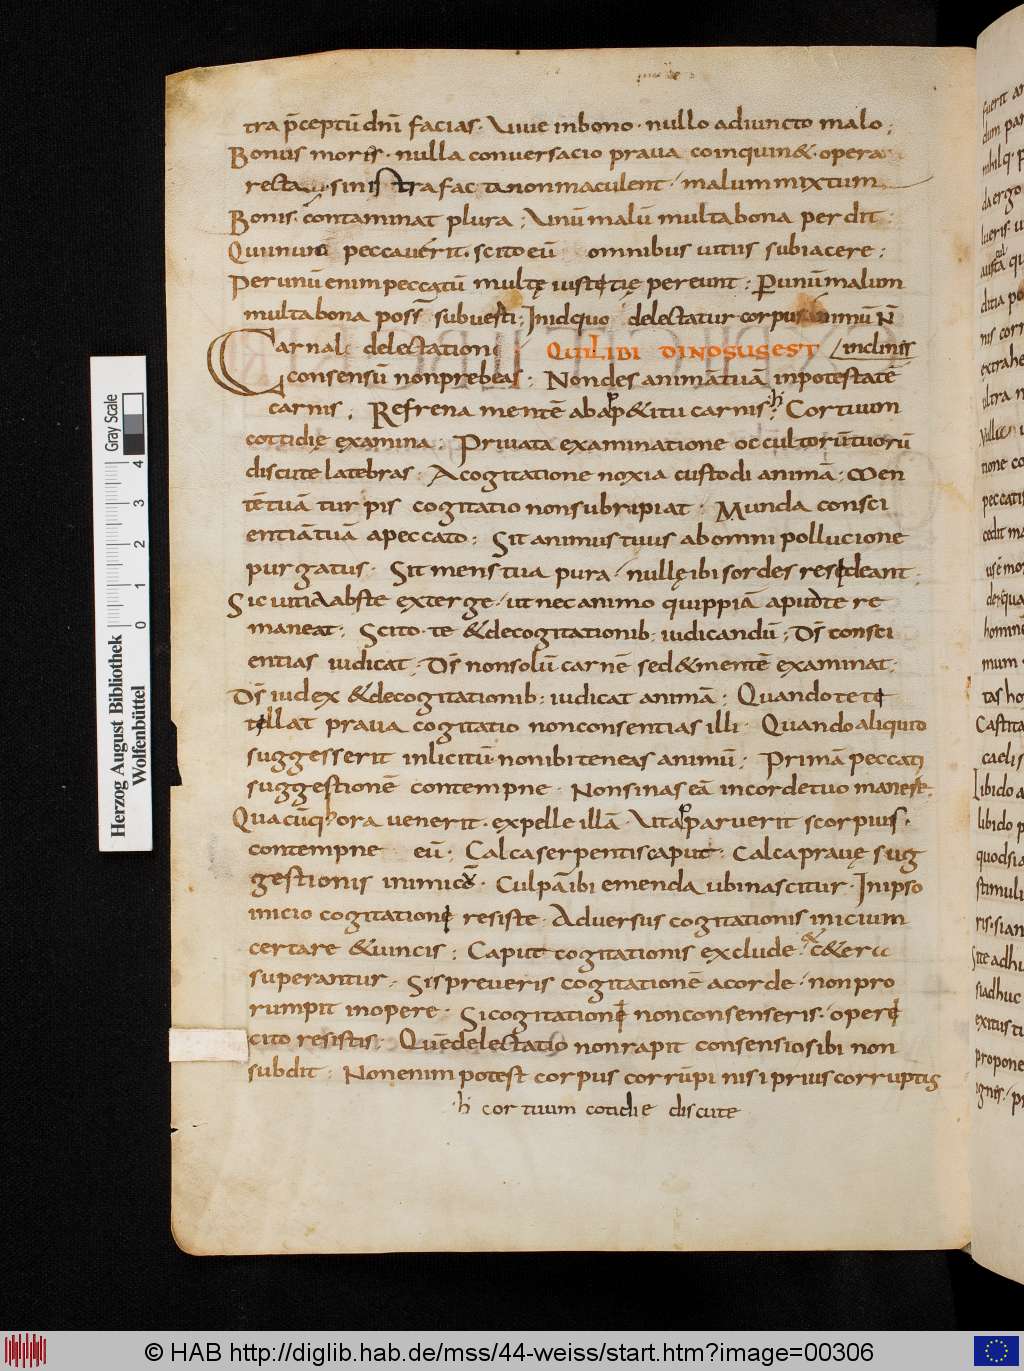 tra p̄ceptū dnī facias · Viue in bono · nullo adiuncto malo ;
Bonus moris · nulla conuersacio praua coinquin& · opera
recta · sinistra facta non maculent · malum mixtum
Bonis · contaminat plura ; Vnū malū multa bona perdit ;
Qui in uno peccauerit · scito eū omnibus uitiis subiacere ;
Per unū enim peccatū multę iustitię pereunt ; P unū malum
multa bona poss̄ subuerti ; In id quo delectatur corpus animū N̄
Carnali delectationi QUI LIBIDINO SUGEST inclinis
consensū non prebeas ; Non des animā tuā in potestatē
carnis ; Refrena mentē ab app&itu carnis ·h· ; Cor tuum
cottidię examina ; Priuata examinatione occultorū tuorū
discute latebras · A cogitatione noxia custodi animā · Men
tē tuā turpis cogitatio non subripiat ; Munda consci
entiā tuā a peccato ; Sit animus tuus ab omni pollucione
purgatus · Sit mens tua pura · nullę ibi sordes resideant ;
Sic uitia abs te exterge · ut nec animo quippiā apud te re
maneat ; Scito te & de cogitationib; iudicandū ; Ds̄ consci
entias iudicat ; Ds̄ non solū carnē sed & mentē examinat ;
Ds̄ iudex & de cogitationib; iudicat animā ; Quando te ti
tillat praua cogitatio non consentias illi · Quando aliquid
suggesserit inlicitū · non ibi teneas animū ; Primā peccati
suggestionē contempne · Non sinas eā in corde tuo manere ;
Quacūq; hora uenerit · expelle illā · Vt apparuerit scorpius ·
contempne eū ; Calca serpentis caput ; Calca prauę sug
gestionis inimicū · Culpā ibi emenda ubi nascitur · In ipso
inicio cogitationi resiste · Aduersus cogitationis inicium
certare & uincis ; Caput cogitationis exclude · & c&era
superantur · Si spreueris cogitationē a corde · non pro
rumpit in opere · Si cogitationi non consenseris · operi
cito resistis ; Quē delectatio non rapit consensio sibi non
subdit ; Non enim potest corpus corrūpi nisi prius corruptus
·h· cor tuum cotidie discute
Gray Scale
0 1 2 3 4
Herzog August Bibliothek
Wolfenbüttel
© HAB http://diglib.hab.de/mss/44-weiss/start.htm?image=00306